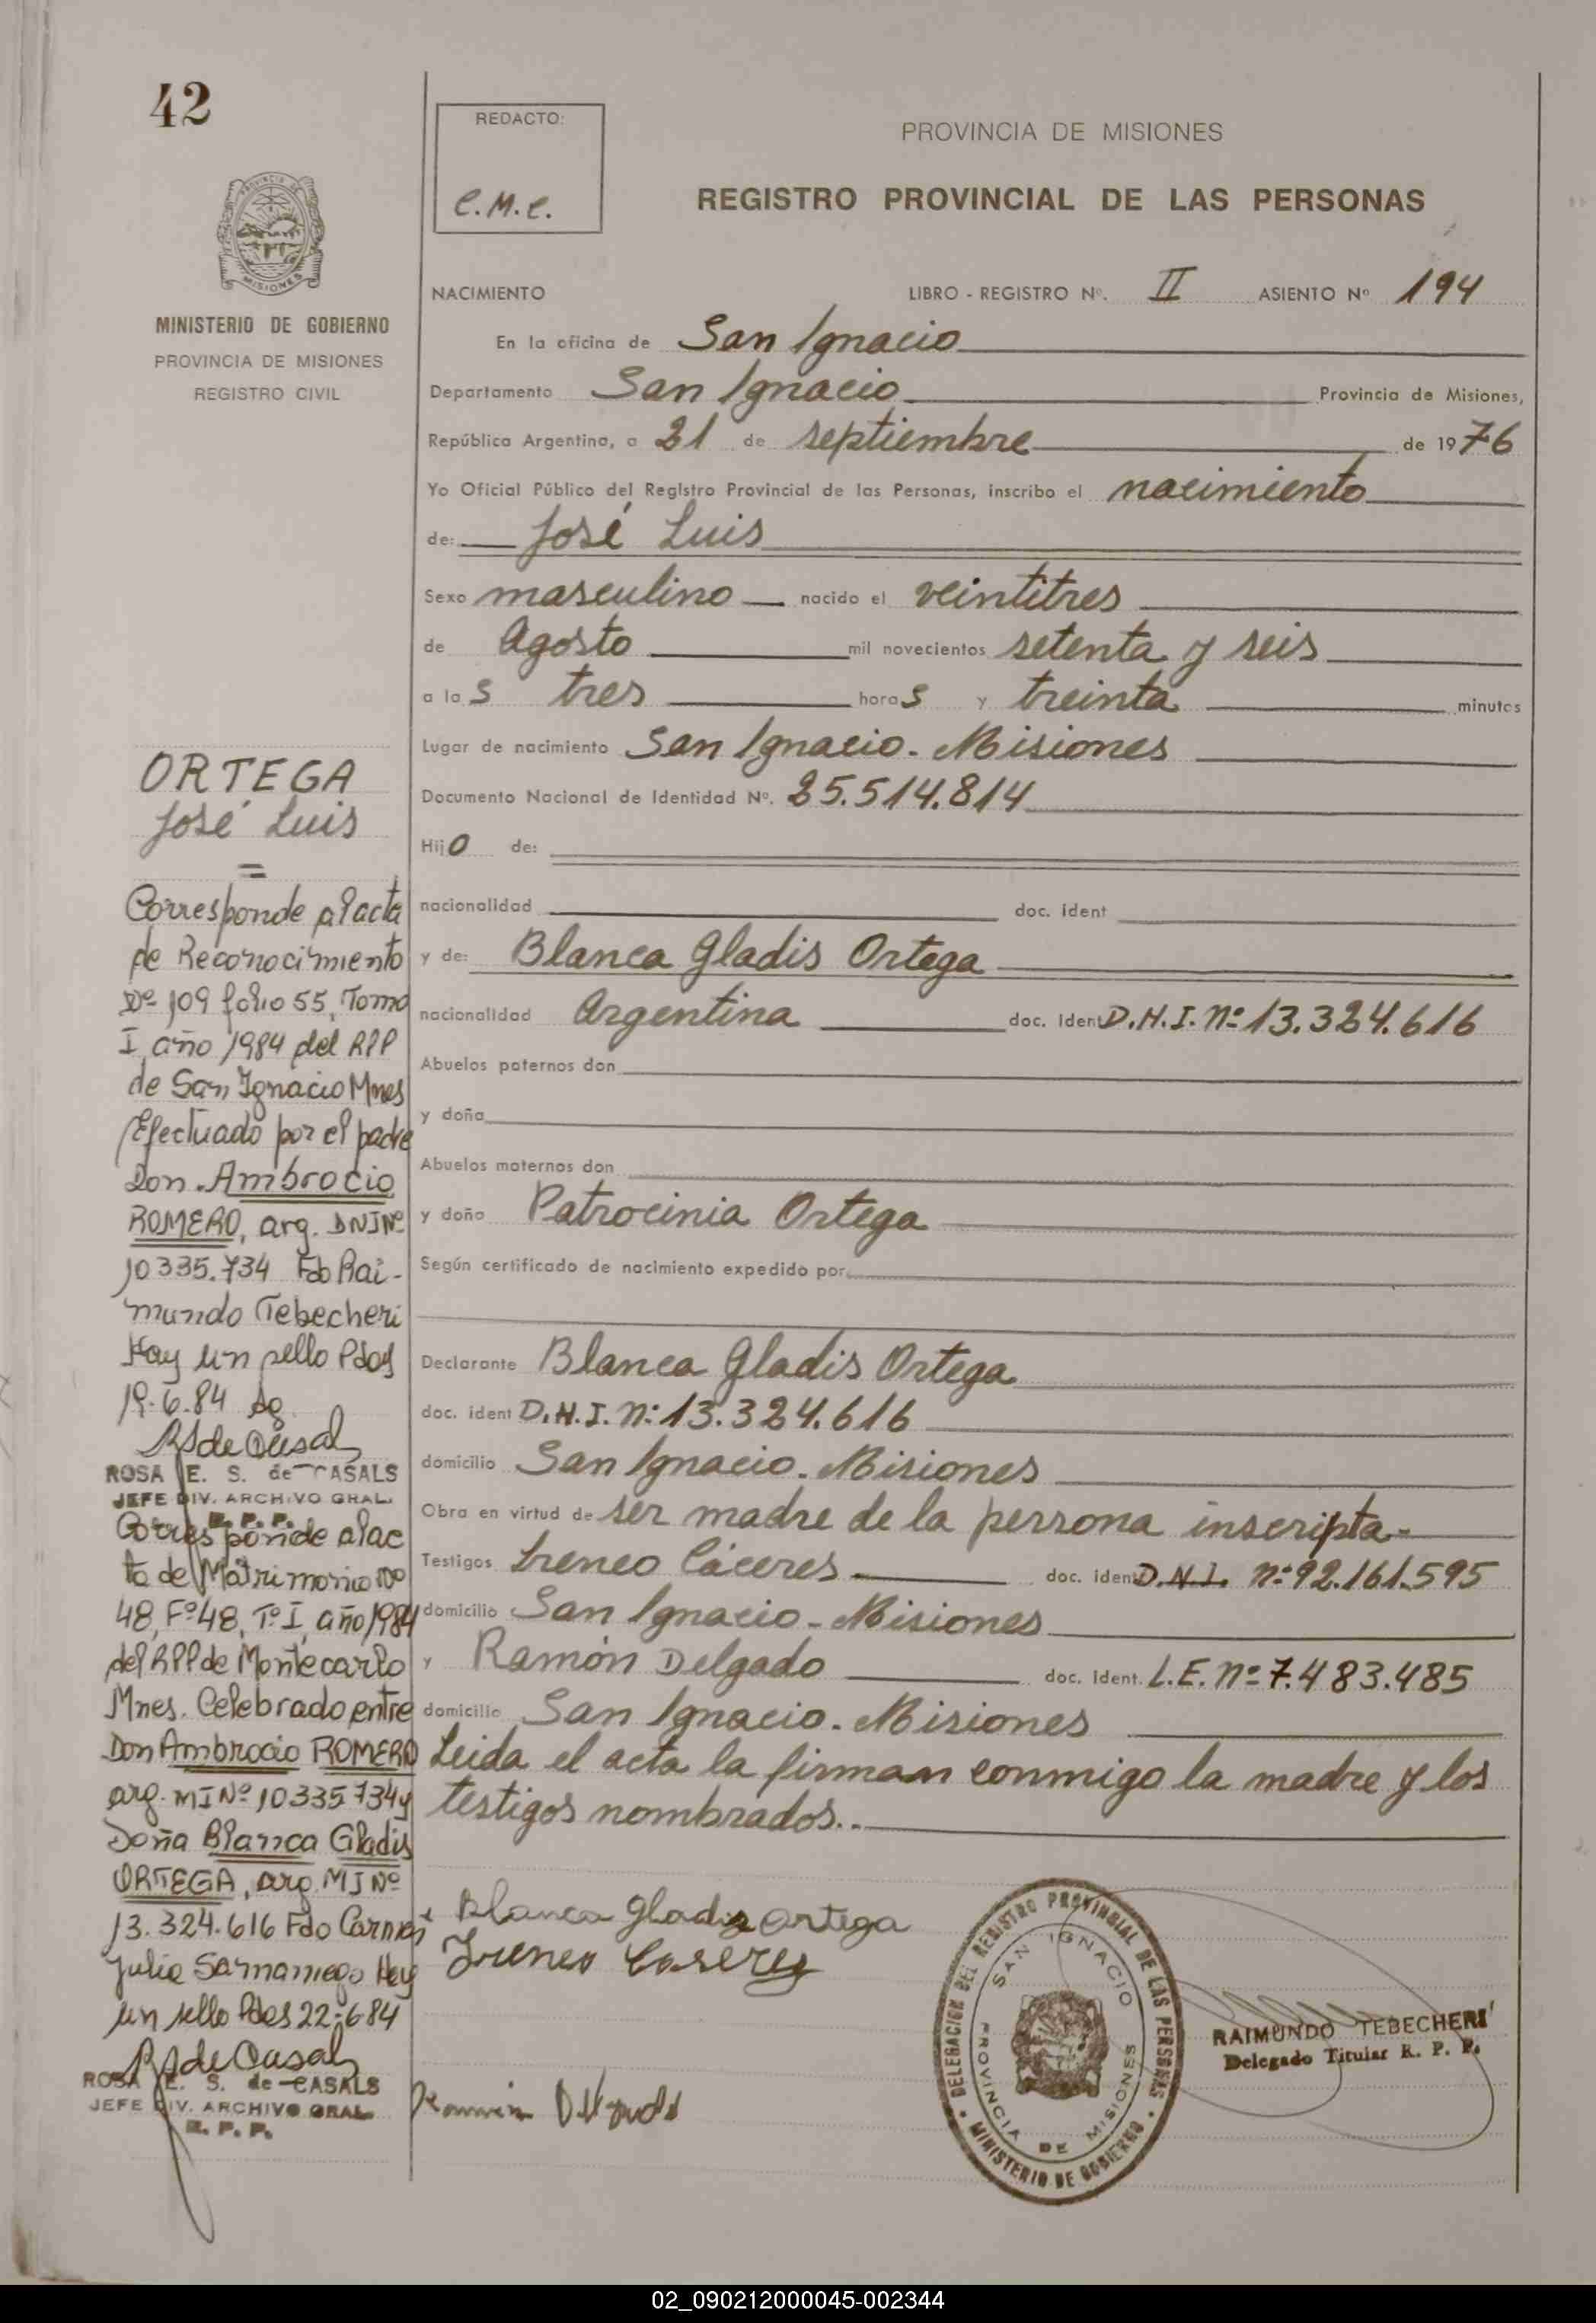 42
MINISTERIO DE GOBIERNO
PROVINCIA DE MISIONES
REGISTRO CIVIL
ORTEGA
José Luis
=
Corresponde al acta
de Reconocimiento
Nº 109 folio 55, Tomo
I, año 1984 del RPP
de San Ignacio Mnes
Efectuado por el padre
Don Ambrocio
ROMERO, arg. DNI Nº
10335.734 Fdo Rai-
mundo Tebecheri
Hay un sello Pdas
19.6.84
ROSA E. S. de CASALS
JEFE DIV. ARCHIVO GRAL.
R. P. P.
Corresponde al ac
ta de Matrimonio Nº
48, Fº 48, Tº I, año 1984
del RPP de Montecarlo
Mnes. Celebrado entre
Don Ambrocio ROMERO
arg. MI Nº 10335734 y
Doña Blanca Gladis
ORTEGA, arg. MI Nº
13.324.616 Fdo
Julia Samaniego Hay
un sello Pdas 22-6-84
ROSA E. S. de CASALS
JEFE DIV. ARCHIVO GRAL.
R. P. P.
REDACTO:
C.M.C.
PROVINCIA DE MISIONES
REGISTRO PROVINCIAL DE LAS PERSONAS
NACIMIENTO LIBRO - REGISTRO Nº. II ASIENTO Nº 194
En la oficina de San Ignacio
Departamento San Ignacio Provincia de Misiones,
República Argentina, a 21 de septiembre de 1976
Yo Oficial Público del Registro Provincial de las Personas, inscribo el nacimiento
de: José Luis
Sexo masculino nacido el veintitres
de Agosto mil novecientos setenta y seis
a las tres horas y treinta minutos
Lugar de nacimiento San Ignacio. Misiones
Documento Nacional de Identidad Nº. 25.514.814
Hijo de:
nacionalidad doc. ident
y de: Blanca Gladis Ortega
nacionalidad Argentina doc. ident D.N.I. Nº 13.324.616
Abuelos paternos don
y doña
Abuelos maternos don
y doña Patrocinia Ortega
Según certificado de nacimiento expedido por
Declarante Blanca Gladis Ortega
doc. ident D.N.I. Nº 13.324.616
domicilio San Ignacio. Misiones
Obra en virtud de ser madre de la persona inscripta.-
Testigos Ireneo Cáceres doc. ident D.N.I. Nº 92.161.595
domicilio San Ignacio - Misiones
y Ramón Delgado doc. ident. L.E. Nº 7.483.485
domicilio San Ignacio. Misiones
Leida el acta la firman conmigo la madre y los
testigos nombrados..
Blanca Gladis Ortega
Ireneo Caseres
Ramón Delgado
DELEGACION DEL REGISTRO PROVINCIAL DE LAS PERSONAS
SAN IGNACIO
PROVINCIA DE MISIONES
MINISTERIO DE GOBIERNO
RAIMUNDO TEBECHERI
Delegado Titular R. P. P.
02_090212000045-002344